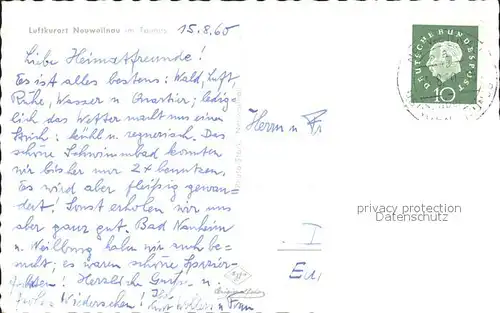 Luftkurort Neuweilnau im Taunus
15.8.60
Liebe Heimatfreunde!
Es ist alles bestens: Wald, Luft,
Ruhe, Wasser u. Quartier; ledig-
lich das Wetter macht uns einen
Strich: kühl u. regnerisch. Das
schöne Schwimmbad konnten
wir bisher nur 2x benutzen.
Es wird aber fleißig gewan-
dert! Sonst erholen wir uns
aber ganz gut. Bad Nauheim
u. Weilburg haben wir auch be-
sucht; es waren schöne Spazier-
fahrten! Herzliche Grüße u.
Wiedersehen! Ihr
u. Frau
Herrn u. Fr
I
Eu
DEUTSCHE BUNDESPOST
10
privacy protection
Datenschutz
Agfa